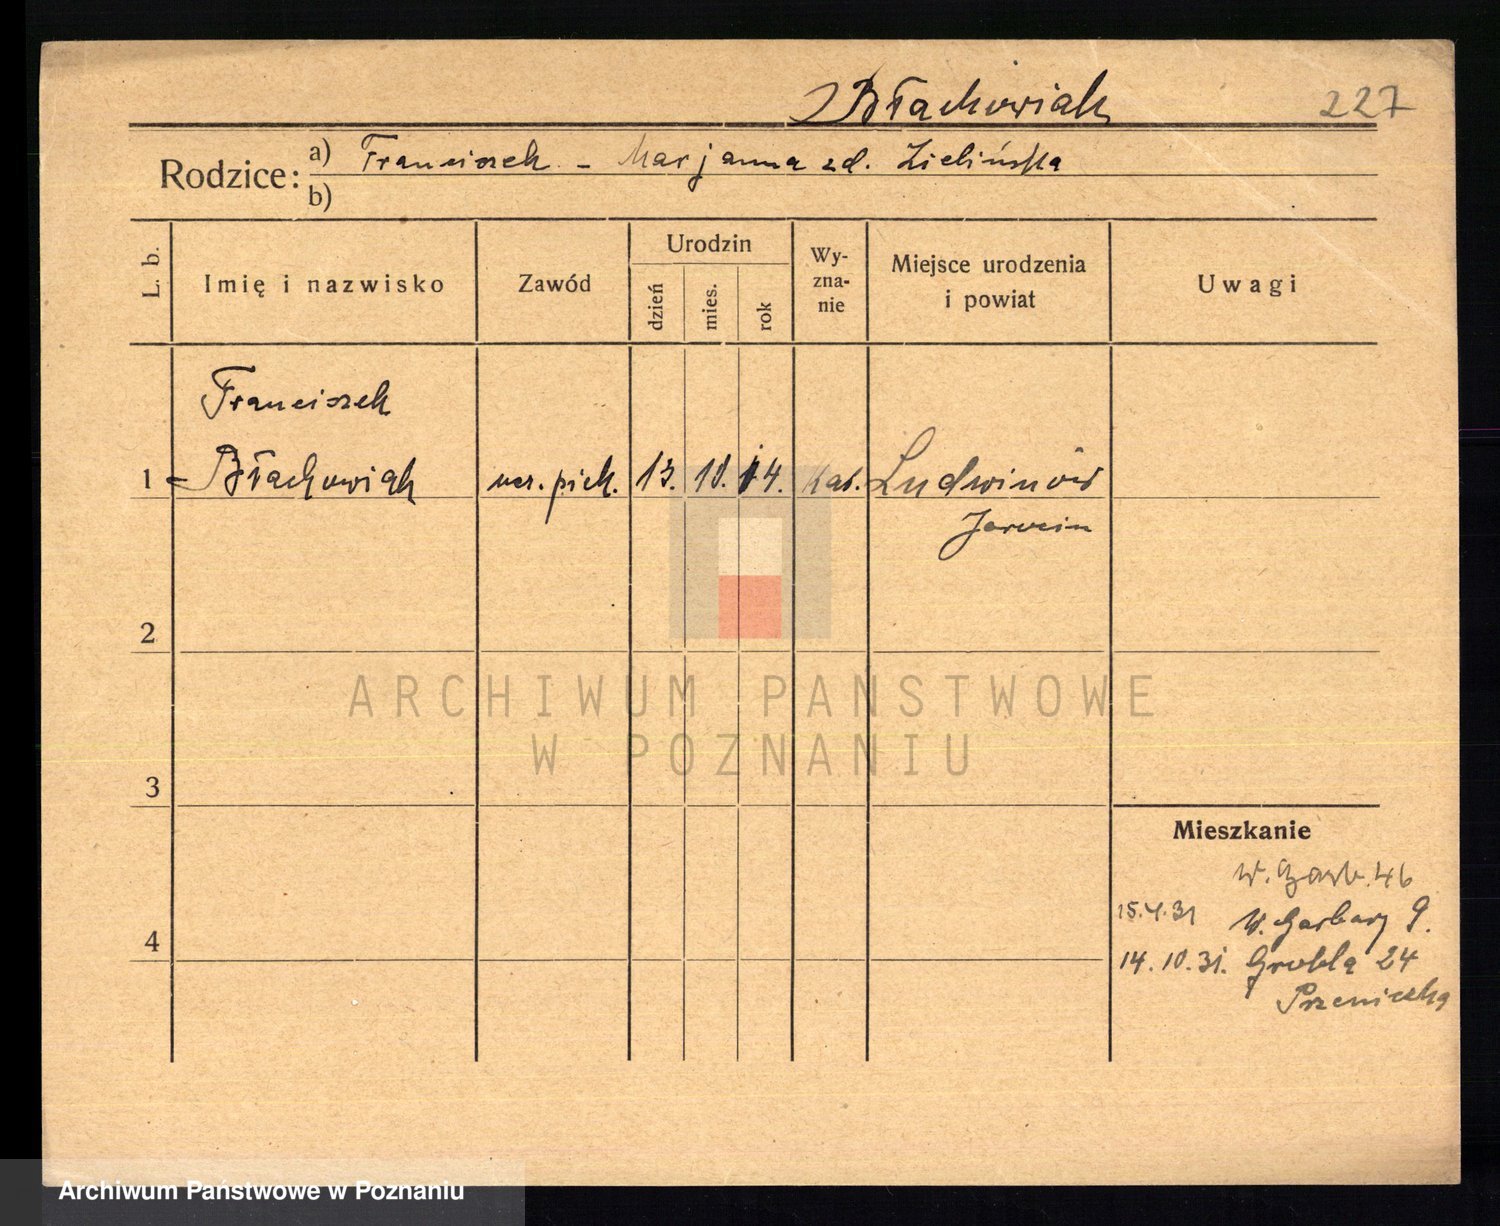 Błachowiak 227
Rodzice: a) Franciszek - Marjanna zd. Zielińska
b)
L. b. Imię i nazwisko Zawód Urodzin dzień mies. rok Wy-zna-nie Miejsce urodzenia i powiat Uwagi
Franciszek
1 Błachowiak ucz. piek. 13. 10. 14. kat. Ludwinów
Jarocin
2
ARCHIWUM PAŃSTWOWE
W POZNANIU
3
Mieszkanie
W. Garb. 46
15.4.31 W. Garbary 9.
14.10.31. Grobla 24
4
Archiwum Państwowe w Poznaniu